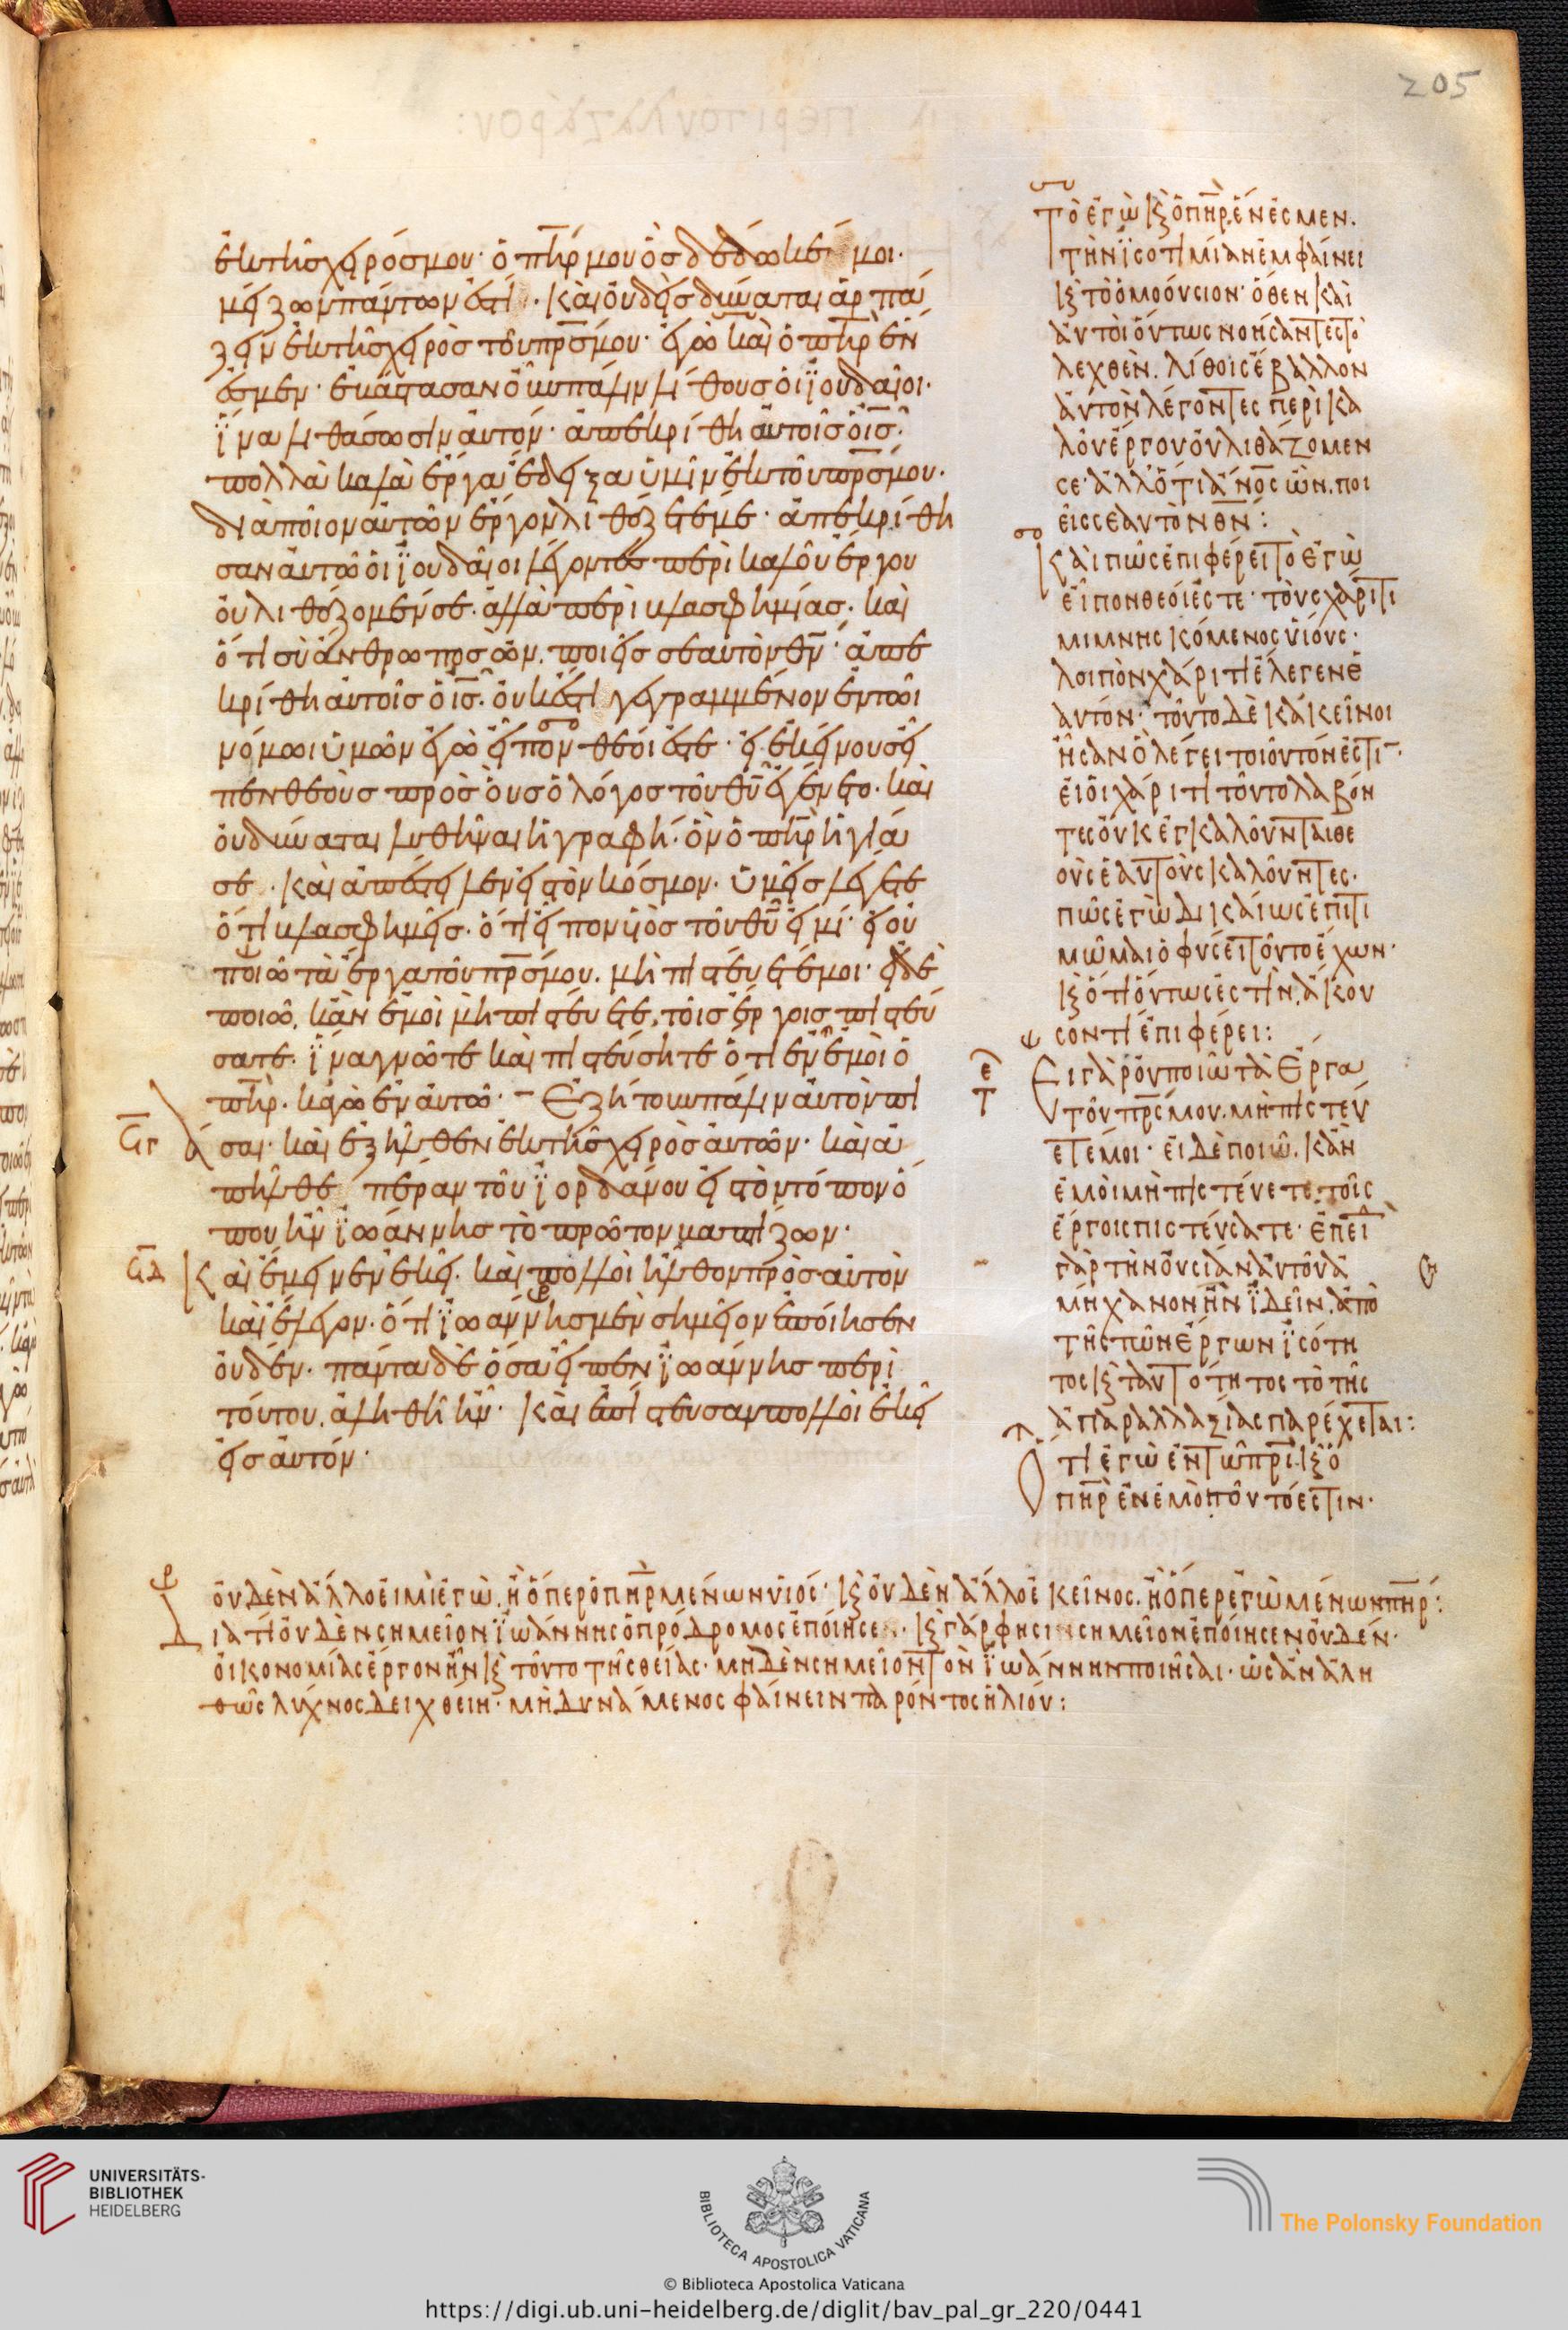 205
ἐκ τῆς χειρός μου· ὁ πηρ μου ὃς δέδωκέ μοι.
μείζων πάντων ἐστί· καὶ οὐδεὶς δύναται ἁρπά
ζειν ἐκ τῆς χειρὸς τοῦ πρς μου· ἐγὼ καὶ ὁ πηρ ἕν
ἐσμεν· ἐβάστασαν οὖν πάλιν λίθους οἱ ϊουδαῖοι·
ἵνα λιθάσωσιν αὐτόν· ἀπεκρίθη αὐτοῖς ὁ ις·
πολλὰ καλὰ ἔργα ἔδειξα ὑμῖν ἐκ τοῦ πρς μου·
διὰ ποῖον αὐτῶν ἔργον λιθάζετέ με· ἀπεκρίθη
σαν αὐτῶ οἱ ϊουδαῖοι λέγοντες περὶ καλοῦ ἔργου
οὐ λιθάζομέν σε· ἀλλὰ περὶ βλασφημίας· καὶ
ὅτι σὺ ἄνθρωπος ὢν, ποιεῖς σεαυτὸν θν· ἀπε
κρίθη αὐτοῖς ὁ ις· οὐκ ἔστι γεγραμμένον ἐν τῶι
νόμωι ὑμῶν ἐγὼ εἶπον θεοί ἐστε· εἰ ἐκείνους εἶ
πεν θεοὺς πρὸς οὓς ὁ λόγος τοῦ θυ ἐγένετο· καὶ
οὐ δύναται λυθῆναι ἡ γραφή· ὃν ὁ πηρ ἡγία
σε· καὶ ἀπέστειλεν εἰς τὸν κόσμον· ὑμεῖς λέγετε
ὅτι βλασφημεῖς· ὅτι εἶπον υἱὸς τοῦ θυ εἰμί· εἰ οὐ
ποιῶ τὰ ἔργα τοῦ πρς μου· μὴ πιστεύετέ μοι· εἰ δὲ
ποιῶ, κἂν ἐμοὶ μὴ πιστεύετε, τοῖς ἔργοις πιστεύ
σατε· ἵνα γνῶτε καὶ πιστεύσητε ὅτι ἐν ἐμοὶ ὁ
πηρ· κἀγὼ ἐν αὐτῶ· Ἐζήτουν πάλιν αὐτὸν πι
άσαι· καὶ ἐξῆλθεν ἐκ τῆς χειρὸς αὐτῶν· καὶ ἀ
πῆλθε πέραν τοῦ ϊορδάνου εἰς τὸν τόπον ὅ
που ἦν ϊωάννης τὸ πρῶτον βαπτίζων·
Καὶ ἔμεινεν ἐκεῖ· καὶ πολλοὶ ἦλθον πρὸς αὐτὸν
καὶ ἔλεγον· ὅτι ϊωάννης μὲν σημεῖον ἐποίησεν
οὐδέν· πάντα δὲ ὅσα εἶπεν ϊωάννης περὶ
τούτου, ἀληθῆ ἦν· Καὶ ἐπίστευσαν πολλοὶ ἐκεῖ
εἰς αὐτόν·
Τὸ ἐγὼ κ ὁ πηρ ἕν ἐσμεν.
τὴν ϊσοτιμίαν ἐμφαίνει
κ τὸ ὁμοούσιον· ὅθεν καὶ
αὐτοὶ ὄντως νοήσαντες τὸ
λεχθὲν. λίθοις ἔβαλλον
αὐτὸν λέγοντες περὶ κα
λοῦ ἔργου οὐ λιθάζομεν
σε· ἀλλ' ὅτι ἄνος ὢν. ποι
εῖς σεαυτὸν θν:
Καὶ πῶς ἐπιφέρει τὸ ἐγὼ
εἶπον θεοί ἐστε· τοὺς χάριτι
μιμνησκόμενος υἱούς·
λοιπὸν χάριτι ἔλεγεν ἑ
αυτόν· τοῦτο δὲ κἀκεῖνοι
ἦσαν ὃ λέγει τοιοῦτόν ἐστι·
εἰ οἱ χάριτι τοῦτο λαβόν
τες οὐκ ἐγκαλοῦνται θε
οὺς ἑαυτοὺς καλοῦντες·
πῶς ἐγὼ δικαίως ἐπιτι
μῶμαι ὁ φύσει τοῦτο ἔχων·
κ ὅτι ὄντως ἐστὶν, ἄκου
σον τί ἐπιφέρει:
Εἰ γὰρ οὐ ποιῶ τὰ ἔργα
τοῦ πρς μου. μὴ πιστεύ
ετέ μοι· εἰ δὲ ποιῶ. κἂν
ἐμοὶ μὴ πιστεύετε. τοῖς
ἔργοις πιστεύσατε· ἐπεὶ
γὰρ τὴν οὐσίαν αὐτοῦ ἀ
μήχανον ἦν ϊδεῖν. ἀπὸ
τῆς τῶν ἔργων ϊσότη
τος κ ταυτότητος τὸ τῆς
ἀπαραλλαξίας παρέχεται:
Ὅτι ἐγὼ ἐν τῶ πρι κ ὁ
πηρ ἐν ἐμοὶ τοῦτό ἐστιν·
οὐδὲν ἄλλο εἰμὶ ἐγὼ, ἢ ὅπερ ὁ πηρ μένων υἱός· κ οὐδὲν ἄλλο ἐκεῖνος, ἢ ὅπερ ἐγὼ μένων πηρ:
Διατί οὐδὲν σημεῖον ϊωάννης ὁ πρόδρομος ἐποίησε· κ γάρ φησιν σημεῖον ἐποίησεν οὐδέν·
οἰκονομίας ἔργον ἦν κ τοῦτο τῆς θείας· μηδὲν σημεῖον τὸν ϊωάννην ποιῆσαι· ὡς ἂν ἀλη
θῶς λύχνος δειχθείη· μὴ δυνάμενος φαίνειν παρόντος ἡλίου:
UNIVERSITÄTS-
BIBLIOTHEK
HEIDELBERG
BIBLIOTECA APOSTOLICA VATICANA
The Polonsky Foundation
© Biblioteca Apostolica Vaticana
https://digi.ub.uni-heidelberg.de/diglit/bav_pal_gr_220/0441